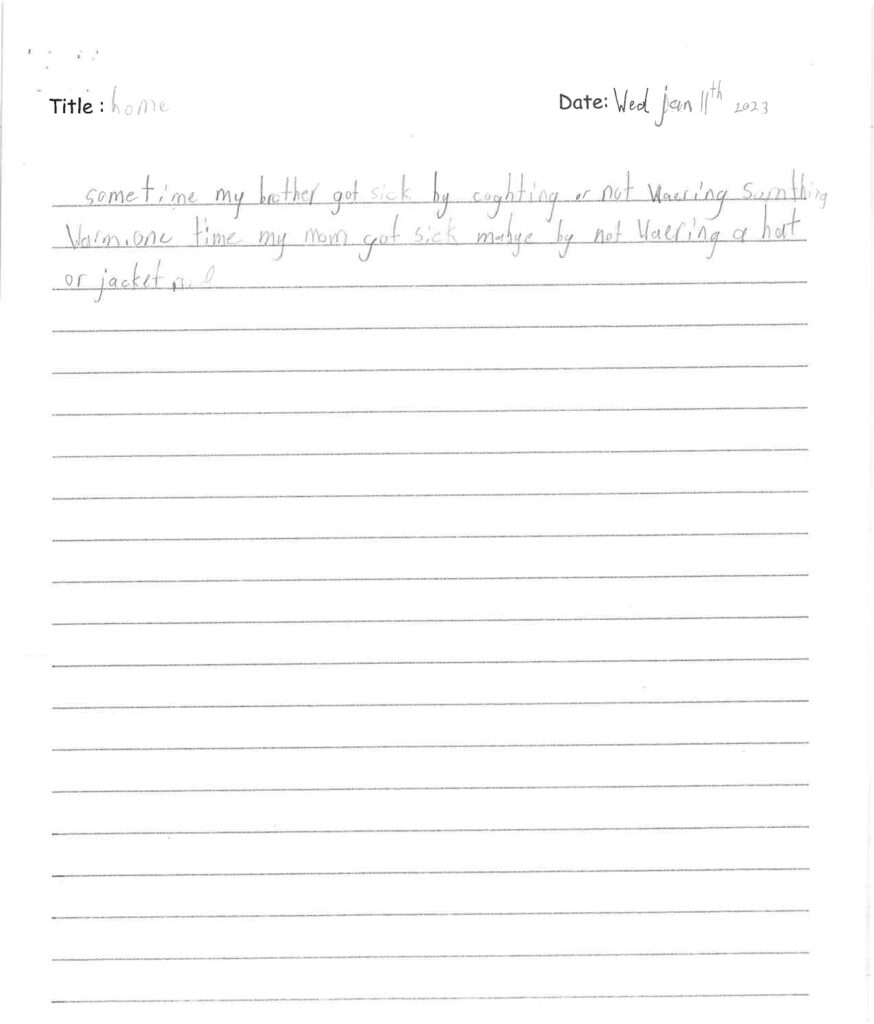 Title : home
Date: Wed jan 11th 2023
sometime my brother got sick by coghting or not Waering sumthing
Warm.one time my mom got sick mabye by not Waering a hat
or jacket